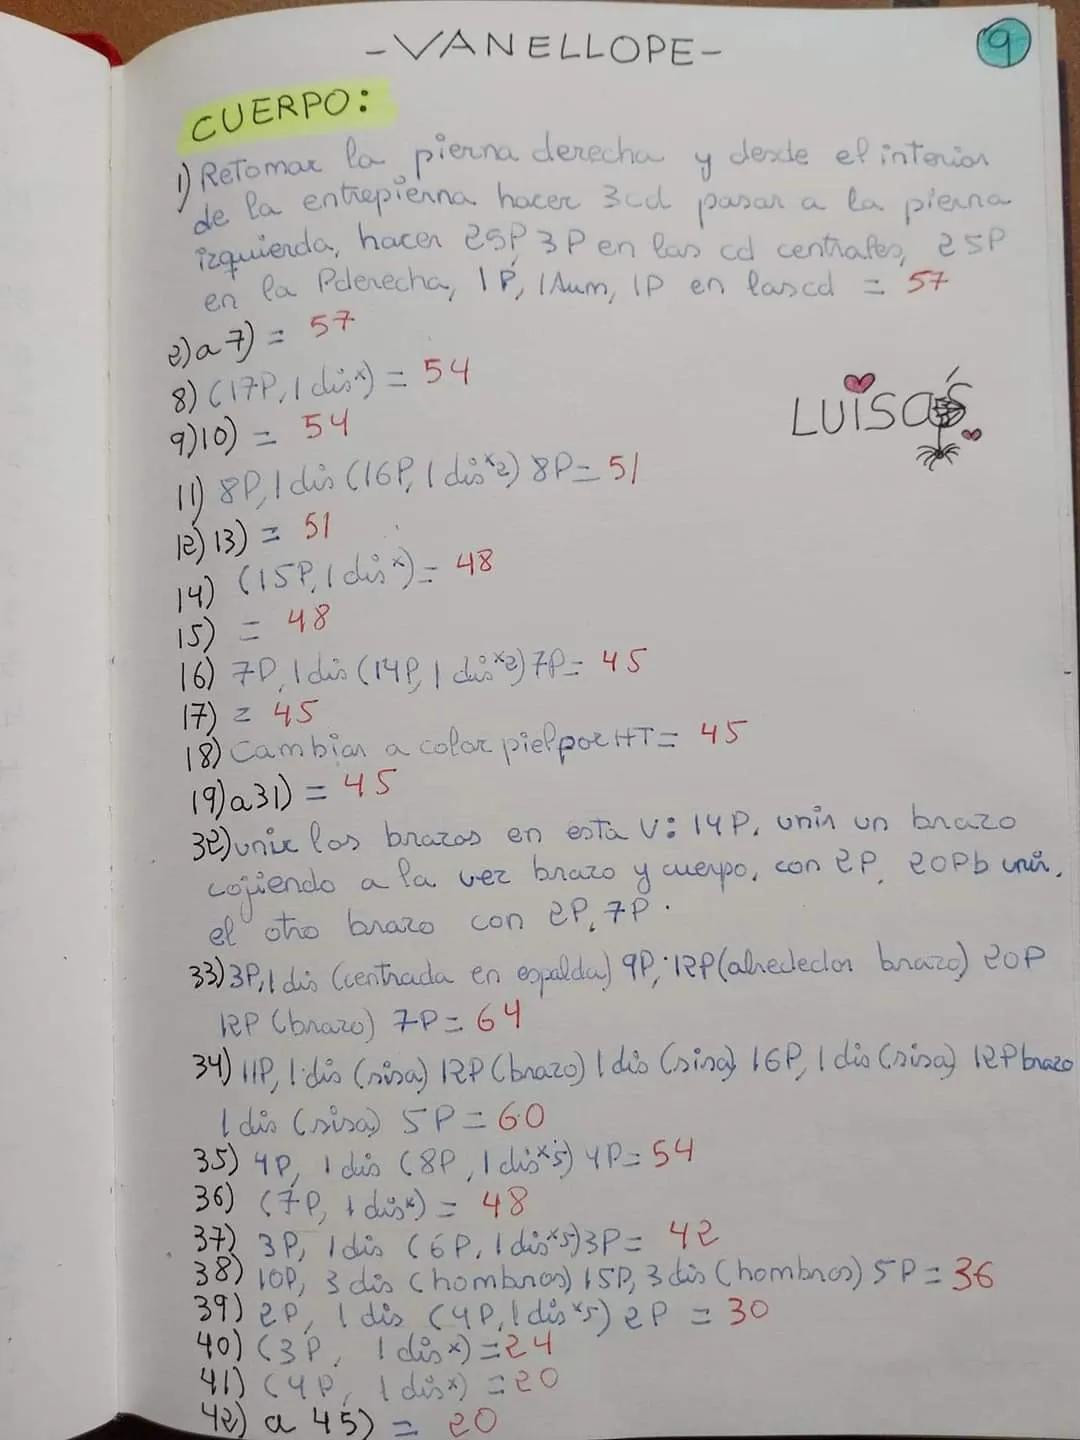 -VANELLOPE-
9
CUERPO:
1) Retomar la pierna derecha y desde el interior
de la entrepierna hacer 3cd pasar a la pierna
izquierda, hacer 25P, 3P en las cd centrales, 25P
en la Pderecha, 1P, 1Aum, 1P en las cd = 57
2) a 7) = 57
8) (17P, 1 dis x) = 54
9)10) = 54
LUISA'S
11) 8P, 1 dis (16P, 1 dis x2) 8P = 51
12) 13) = 51
14) (15P, 1 dis x) = 48
15) = 48
16) 7P, 1 dis (14P, 1 dis x2) 7P = 45
17) = 45
18) Cambiar a color piel por HT = 45
19) a 31) = 45
32) unir los brazos en esta V: 14P, unir un brazo
cojiendo a la vez brazo y cuerpo, con 2P, 20Pb unir,
el otro brazo con 2P, 7P.
33) 3P, 1 dis (centrada en espalda) 9P, 12P (alrededor brazo) 20P
12P (brazo) 7P = 64
34) 11P, 1 dis (sisa) 12P (brazo) 1 dis (sisa) 16P, 1 dis (sisa) 12P brazo
1 dis (sisa) 5P = 60
35) 4P, 1 dis (8P, 1 dis x5) 4P = 54
36) (7P, 1 dis x) = 48
37) 3P, 1 dis (6P, 1 dis x5) 3P = 42
38) 10P, 3 dis (hombros) 15P, 3 dis (hombros) 5P = 36
39) 2P, 1 dis (4P, 1 dis x5) 2P = 30
40) (3P, 1 dis x) = 24
41) (4P, 1 dis x) = 20
42) a 45) = 20